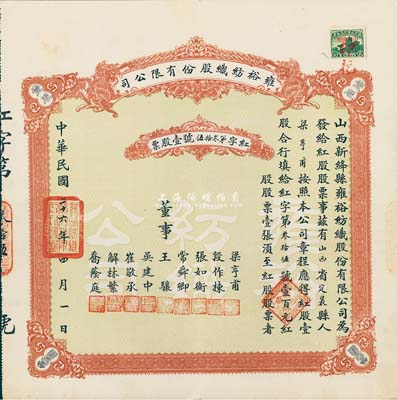 雍裕紡織股份有限公司
紅字第叁拾伍號壹股票
山西新絳縣雍裕紡織股份有限公司為
發給紅股股票事茲有山西省定襄縣人
梁亨甫按照本公司章程應得紅股壹
股合行填給紅字第叁拾伍號壹百元紅
股股票壹張須至紅股股票者
董事
梁亨甫
段作棟
張如衡
常舜卿
王驤
吳建中
崔敬承
解林葉
喬蔭庭
中華民國二十六年四月一日
紅字第
號